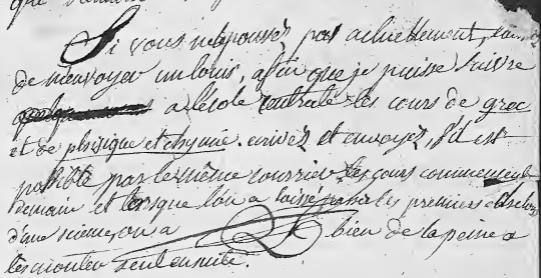 Si vous ne pouvez pas actuellement,
de m'envoyer un louis, afin que je puisse suivre
a l'école centrale les cours de grec
et de physique et chymie. écrivez et envoyez, s'il est
possible par le même courrier. les cours commencent
demain et lorsque l'on a laissé passer les premiers
d'une science, on a bien de la peine a
les ensuite.